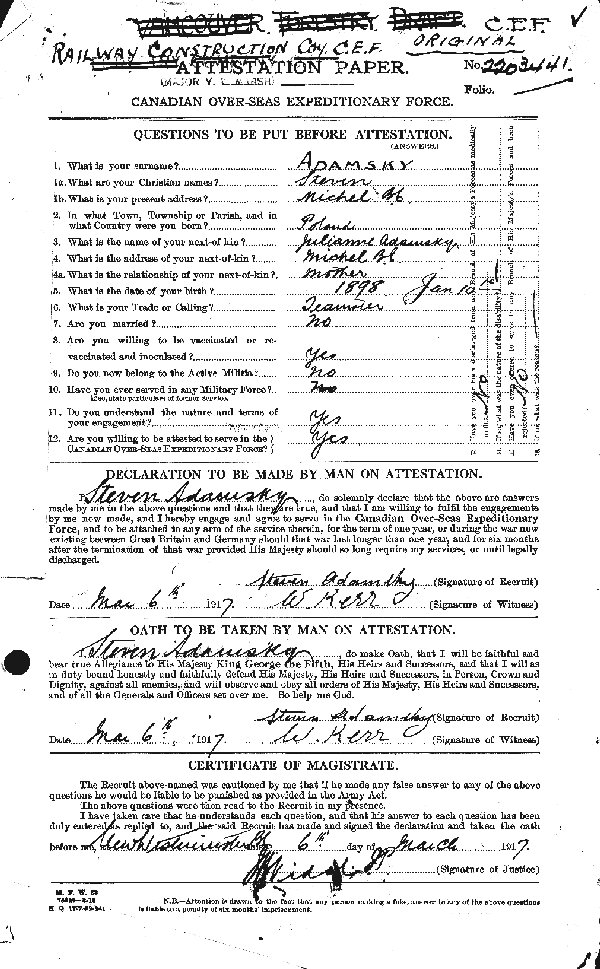 VANCOUVER FORESTRY DRAFT C.E.F.
RAILWAY CONSTRUCTION COY. C.E.F. ORIGINAL
ATTESTATION PAPER. No. 2203441.
Folio.
CANADIAN OVER-SEAS EXPEDITIONARY FORCE.
QUESTIONS TO BE PUT BEFORE ATTESTATION.
(ANSWERS).
1. What is your surname? ADAMSKY
1a. What are your Christian names? Steven
1b. What is your present address? Michel BC
2. In what Town, Township or Parish, and in
what Country were you born? Poland
3. What is the name of your next-of-kin? Julianne Adamsky
4. What is the address of your next-of-kin? Michel BC
4a. What is the relationship of your next-of-kin? Mother
5. What is the date of your birth? 1898 Jan 10th
6. What is your Trade or Calling? Teamster
7. Are you married? No
8. Are you willing to be vaccinated or re-
vaccinated and inoculated? Yes
9. Do you now belong to the Active Militia? No
10. Have you ever served in any Military Force? No
If so, state particulars of former service.
11. Do you understand the nature and terms of
your engagement? Yes
12. Are you willing to be attested to serve in the
CANADIAN OVER-SEAS EXPEDITIONARY FORCE? Yes
DECLARATION TO BE MADE BY MAN ON ATTESTATION.
I, Steven Adamsky, do solemnly declare that the above are answers
made by me in the above questions and that they are true, and that I am willing to fulfil the engagements
by me now made, and I hereby engage and agree to serve in the Canadian Over-Seas Expeditionary
Force, and to be attached to any arm of the service therein, for the term of one year, or during the war now
existing between Great Britain and Germany should that war last longer than one year, and for six months
after the termination of that war provided His Majesty should so long require my services, or until legally
discharged.
Steven Adamsky (Signature of Recruit)
Date Mar 6th 1917. W Kerr (Signature of Witness)
OATH TO BE TAKEN BY MAN ON ATTESTATION.
I, Steven Adamsky, do make Oath, that I will be faithful and
bear true Allegiance to His Majesty King George the Fifth, His Heirs and Successors, and that I will as
in duty bound honestly and faithfully defend His Majesty, His Heirs and Successors, in Person, Crown and
Dignity, against all enemies, and will observe and obey all orders of His Majesty, His Heirs and Successors,
and of all the Generals and Officers set over me. So help me God.
Steven Adamsky (Signature of Recruit)
Date Mar 6th, 1917 W. Kerr (Signature of Witness)
CERTIFICATE OF MAGISTRATE.
The Recruit above-named was cautioned by me that if he made any false answer to any of the above
questions he would be liable to be punished as provided in the Army Act.
The above questions were then read to the Recruit in my presence.
I have taken care that he understands each question, and that his answer to each question has been
duly entered as replied to, and the said Recruit has made and signed the declaration and taken the oath
before me, at New Westminster BC 6th day of March 1917.
(Signature of Justice)
M. F. W. 23
N.B.—Attention is drawn to the fact that any person making a false answer to any of the above questions
is liable to a penalty of six months' imprisonment.